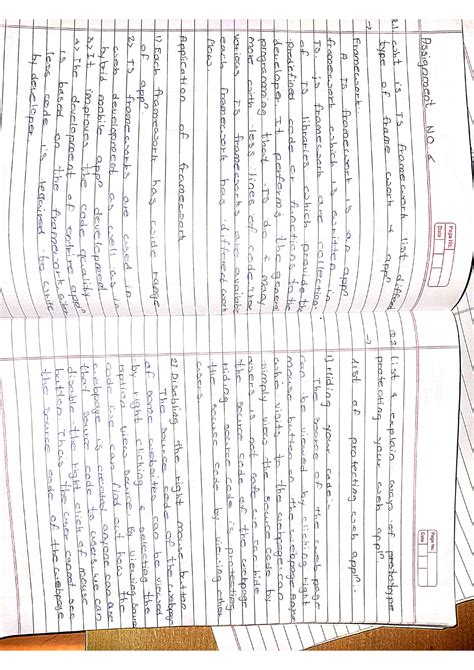 Assignment No 6
Page No.
Date
Q1. what is JS framework list different
type of frame work & appn
→ Framework:
A JS framework is an appn
framework which is written in
JS. js framework are collection
of JS libraries which provide the
predefined code or functions to the
developer. It performs the general
programming that JS do & many
more with less lines of code. The
various JS framework are available
each framework has different work
flows
Application of framework
1) Each framework has wide range
of appn
2) JS frameworks are used in
web development as well as in
hybrid mobile appn development
3) It improves the code quality
4) The development of entire appn
is based on the framework
less code is required to write
by developer.
Page No.
Date
Q.2 List & explain ways of
protecting your web appn
→ list of protecting web appn:
1) Hiding your code:-
The source of the web page
can be viewed by clicking right
mouse button on the webpage
who visits to the webpage can
simply view the source code by
users is not
the source code of the webpage
Hiding source code is protecting
the source code by viewing other
users.
2) Disabling the right mouse button
The source code of the webpage
of some websites can be viewed
by right clicking & selecting the
option view source. By viewing source
code we can find out how the
webpage is created anyone can
that source code to users we can
disable the right click of mouse
button. Thus the user cannot see
the source code of the webpage